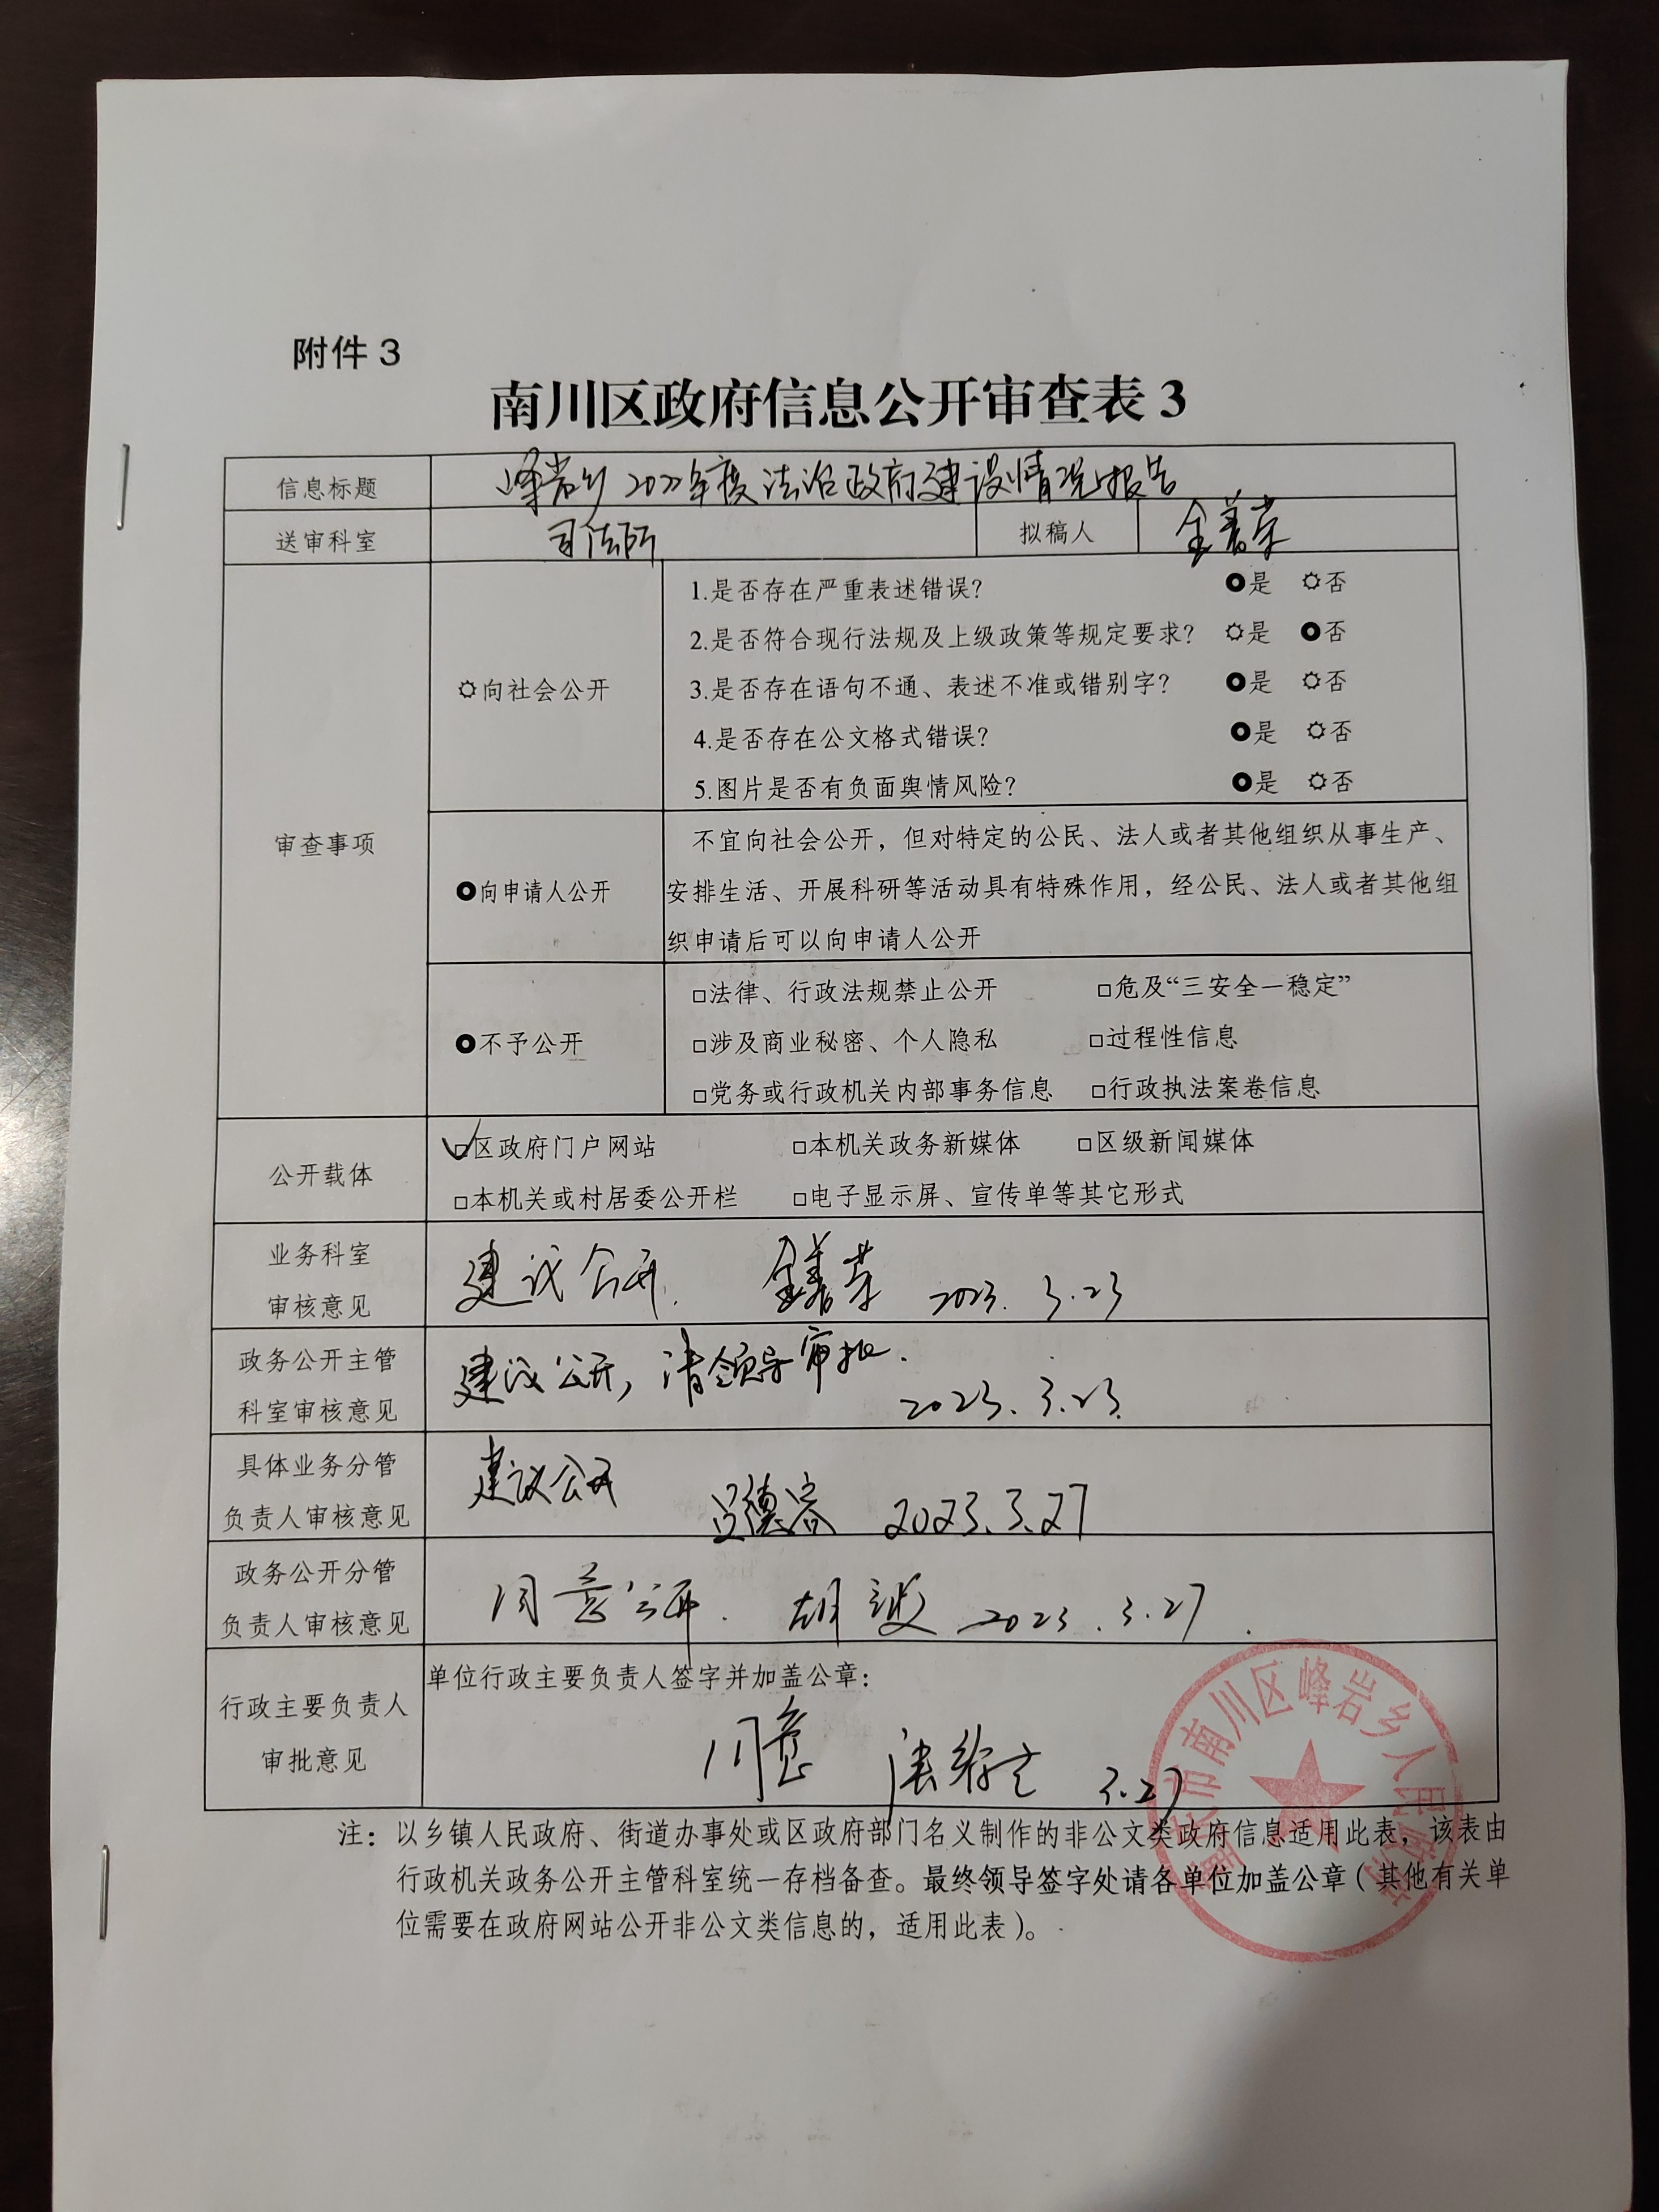 附件3
南川区政府信息公开审查表3
信息标题 峰岩乡2022年度法治政府建设情况报告
送审科室 司法所 拟稿人 金善荣
审查事项
☼向社会公开
1.是否存在严重表述错误? ●是 ☼否
2.是否符合现行法规及上级政策等规定要求? ☼是 ●否
3.是否存在语句不通、表述不准或错别字? ●是 ☼否
4.是否存在公文格式错误? ●是 ☼否
5.图片是否有负面舆情风险? ●是 ☼否
●向申请人公开
不宜向社会公开，但对特定的公民、法人或者其他组织从事生产、
安排生活、开展科研等活动具有特殊作用，经公民、法人或者其他组
织申请后可以向申请人公开
●不予公开
□法律、行政法规禁止公开 □危及“三安全一稳定”
□涉及商业秘密、个人隐私 □过程性信息
□党务或行政机关内部事务信息 □行政执法案卷信息
公开载体
☑区政府门户网站 □本机关政务新媒体 □区级新闻媒体
□本机关或村居委公开栏 □电子显示屏、宣传单等其它形式
业务科室
审核意见
建议公开. 金善荣 2023.3.23
政务公开主管
科室审核意见
建议公开，请领导审批.
2023.3.23.
具体业务分管
负责人审核意见
建议公开
吕德容 2023.3.27
政务公开分管
负责人审核意见
同意公开. 胡 2023.3.27.
行政主要负责人
审批意见
单位行政主要负责人签字并加盖公章:
同意 3.27
重庆市南川区峰岩乡人民政府
注: 以乡镇人民政府、街道办事处或区政府部门名义制作的非公文类政府信息适用此表，该表由
行政机关政务公开主管科室统一存档备查。最终领导签字处请各单位加盖公章（其他有关单
位需要在政府网站公开非公文类信息的，适用此表）。